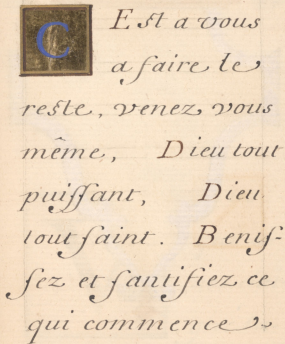 CEst a vous
a faire le
reste, venez vous
même, Dieu tout
puissant, Dieu
tout saint. Benis-
sez et santifiez ce
qui commence